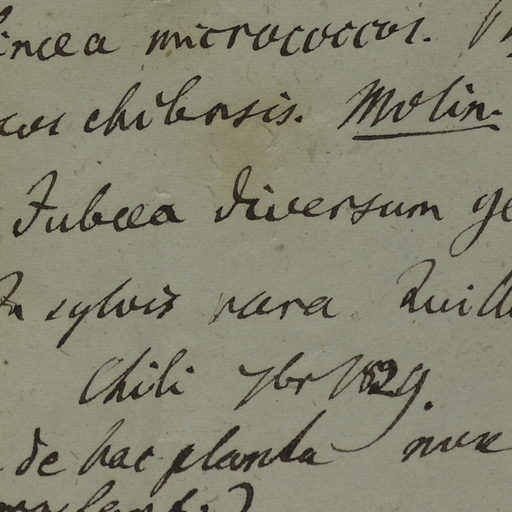 incea micrococcos.
cos chilensis. Molin.
Jubæa diversum ge
In sylvis rara. Quill
Chili 7br 1829.
de hac planta nux